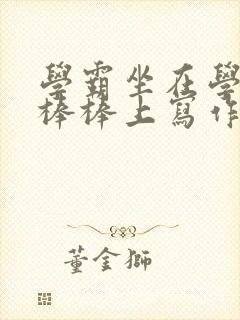 學霸坐在學
棒棒上寫作
董金獅